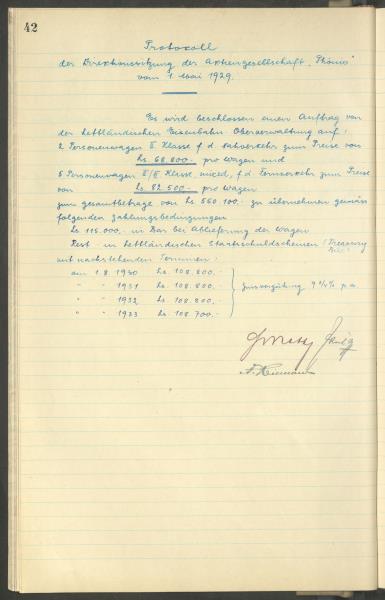 42
Protokoll
der Direktionssitzung der Aktiengesellschaft „Phönix"
vom 1 Mai 1929.
Es wird beschlossen einen Auftrag von
der Lettländischen Eisenbahn Oberverwaltung auf:
2 Personenwagen II Klasse f. d. Nahverkehr zum Preise von
Ls. 68.800.- pro Wagen und
5 Personenwagen II/III Klasse mixed, f. d. Fernverkehr zum Preise
von Ls. 82.500.- pro Wagen
zum Gesamtbetrage von Ls 550.100.- zu übernehmen gemäss
folgenden Zahlungsbedingungen
Ls. 115.000.- in Bar bei Ablieferung der Wagen
Rest in Lettländischen Staatsschuldscheinen (Treasury
Bills)
mit nachstehenden Terminen:
am 1. 8. 1930 Ls. 108.800.-
" " 1931 Ls. 108.800.-
" " 1932 Ls. 108.800.-
" " 1933 Ls. 108.700.-
Zinsvergütung 9 % p.a.